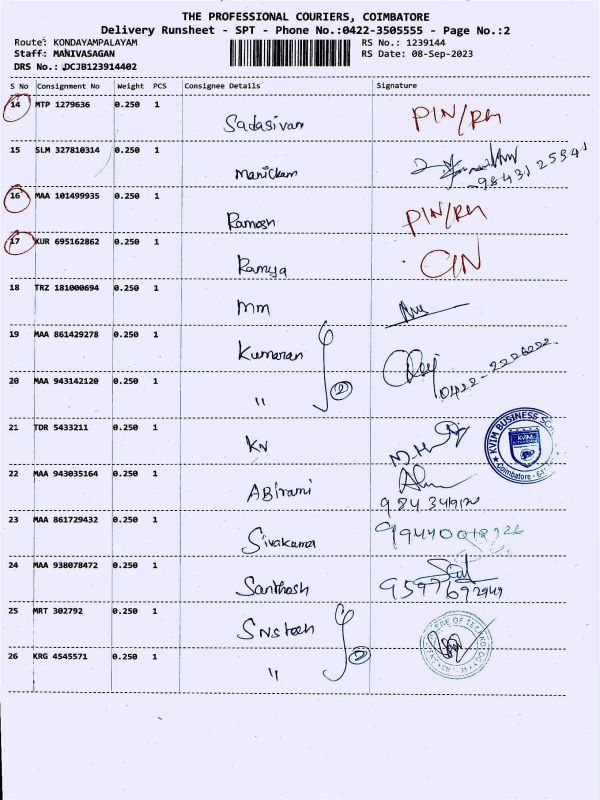 THE PROFESSIONAL COURIERS, COIMBATORE
Delivery Runsheet - SPT - Phone No.:0422-3505555 - Page No.:2
Route: KONDAYAMPALAYAM RS No.: 1239144
Staff: MANIVASAGAN RS Date: 08-Sep-2023
DRS No.: DCJB123914402
S No Consignment No Weight PCS Consignee Details Signature
14 MTP 1279636 0.250 1
Sadasivam PIN/RM
15 SLM 327810314 0.250 1
Manickam
16 MAA 101499935 0.250 1
Ramesh PIN/RM
17 KUR 695162862 0.250 1
Ramya
18 TRZ 181000694 0.250 1
MM
19 MAA 861429278 0.250 1
Kumaran 0422-2226222
20 MAA 943142120 0.250 1
" 2
21 TDR 5433211 0.250 1
KV
KVIM BUSINESS
KVIM
Coimbatore
22 MAA 943035164 0.250 1
ABirami
23 MAA 861729432 0.250 1
Sivakuma
24 MAA 938078472 0.250 1
Santhosh 9597692949
25 MRT 302792 0.250 1
SNS tech
OF TECHNOLOGY
26 KRG 4545571 0.250 1
" 2